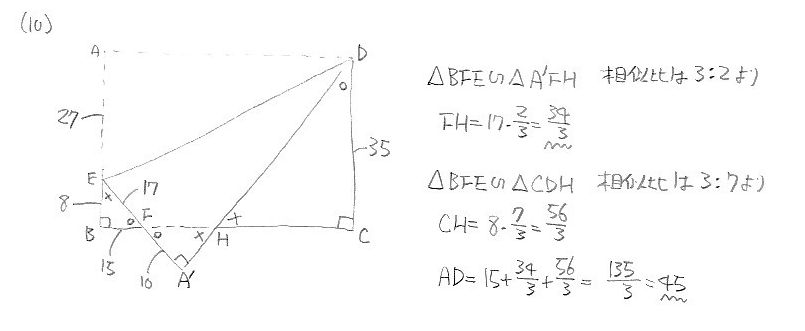 (10)
A
D
27
35
E
17
8
F
B
15
H
C
10
A'
△BFE∽△A'FH 相似比は3:2より
FH=17・2/3=34/3
△BFE∽△CDH 相似比は3:7より
CH=8・7/3=56/3
AD=15+34/3+56/3=135/3=45